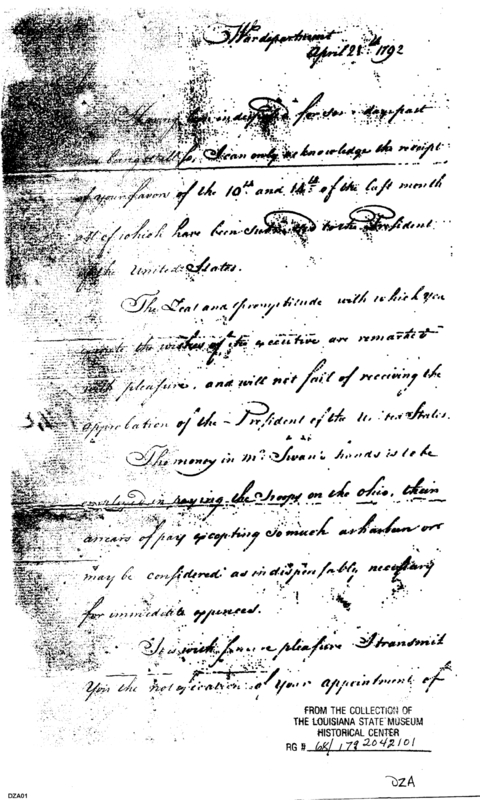 War department
April 21st 1792
Having been indisposed for some days past
and being still so, I can only acknowledge the receipt
of your favors of the 10th and 14th of the last month
all of which have been submitted to the President
of the United States.
The Zeal and promptitude with which you
execute the wishes of the executive are remarked
with pleasure, and will not fail of receiving the
approbation of the President of the United States.
The money in Mr. Swan's hands is to be
employed in paying the troops on the ohio, their
arrears of pay excepting so much as has been or
may be considered as indispensably necessary
for immediate expences.
It is with sincere pleasure I transmit
you the notification of your appointment of
FROM THE COLLECTION OF
THE LOUISIANA STATE MUSEUM
HISTORICAL CENTER
RG # 68/172 2042101
DZA
DZA01